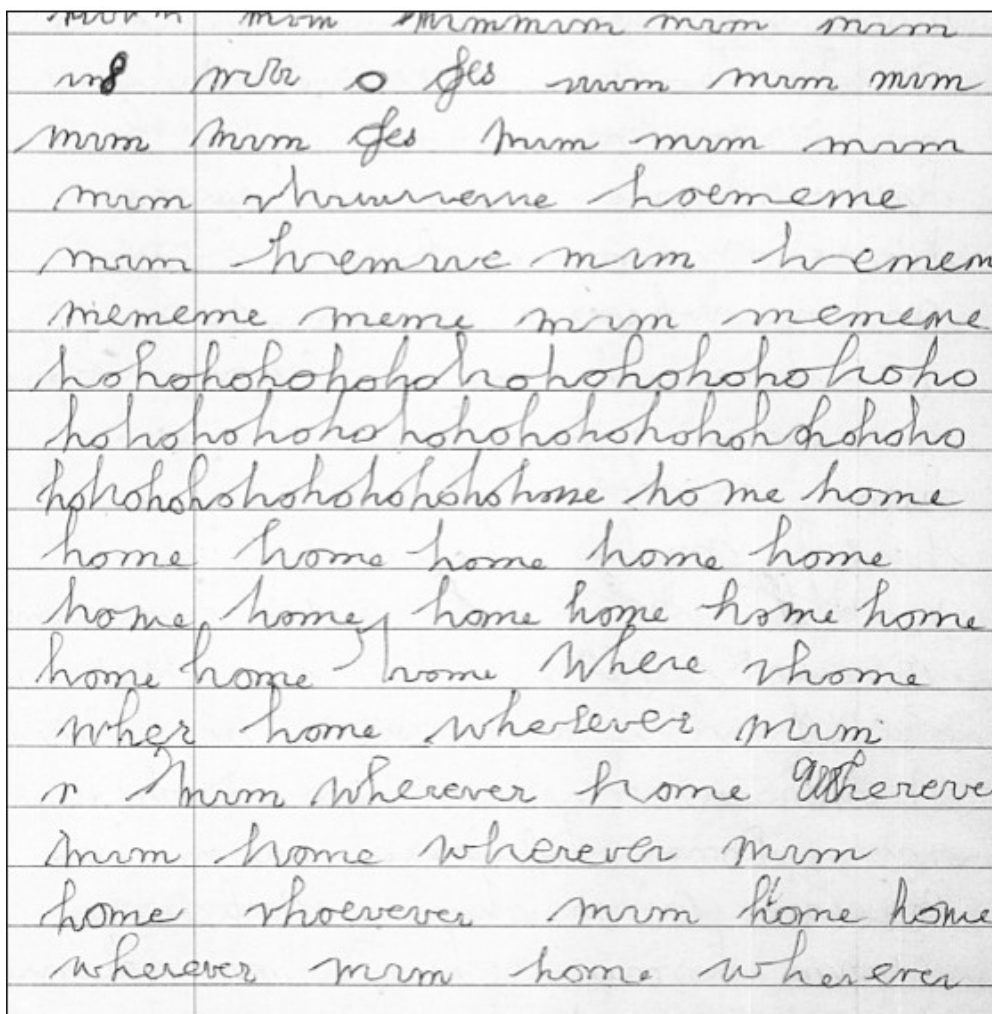 mrm mrmmrm mrm mrm
o yes mrm mrm mrm
mrm mrm yes mrm mrm mrm
mrm hoememe
mrm mrm hemem
mememe meme mrm mememe
hohohohohohohohohohohoho
hohohohohohohohohohohoho
home home
home home home home home
home home home home home home
home home home where whome
wher home wherever mrm
r mrm wherever home whereve
mrm home wherever mrm
home whoevever mrm home home
wherever mrm home wherever